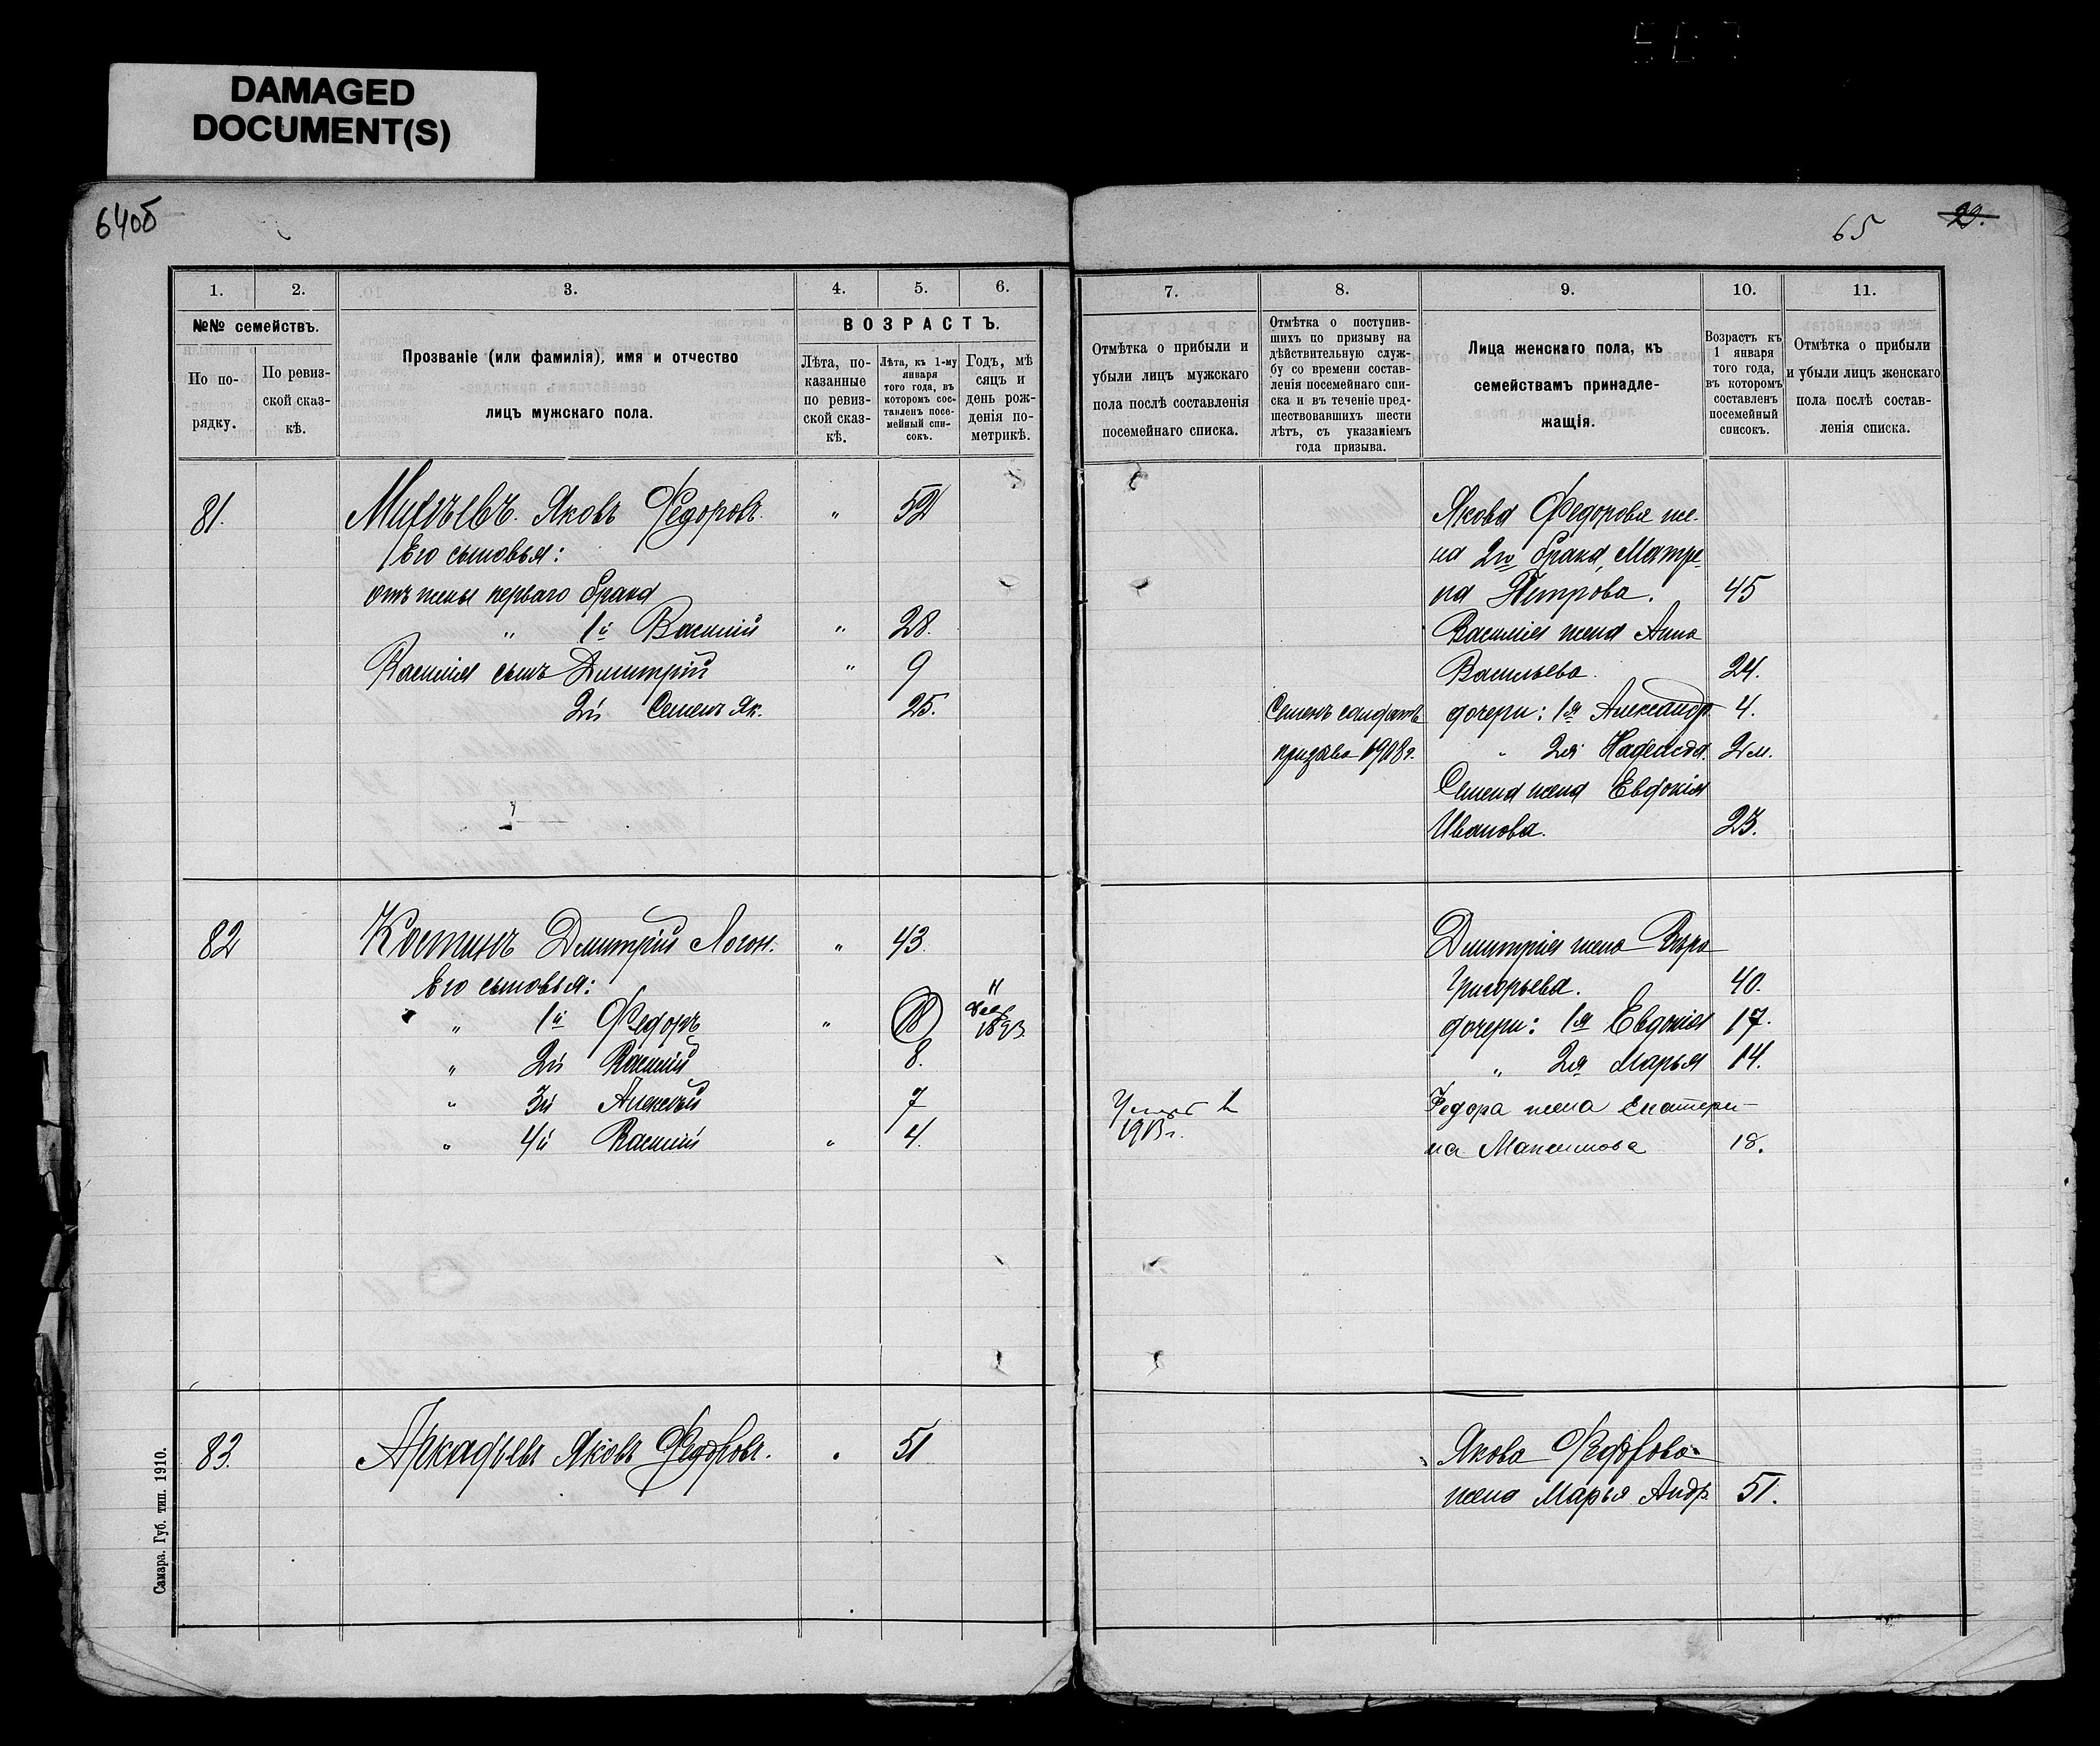 DAMAGED
DOCUMENT(S)
64об
1.
2.
3.
4.
5.
6.
№№ семействъ.
По по-
рядку.
По ревиз-
ской сказ-
кѣ.
Прозваніе (или фамилія), имя и отчество
лицъ мужскаго пола.
ВОЗРАСТЪ.
Лѣта, по-
казанные
по ревиз-
ской сказ-
кѣ.
Лѣта, къ 1-му
января
того года, въ
которомъ сос-
тавленъ посе-
мейный спи-
сокъ.
Годъ, мѣ
сяцъ и
день рож-
денія по-
метрикѣ.
81. Яковъ Федоровъ. " 52
Его сыновья:
отъ жены перваго брака
" 1й Василій " 28.
Василія сынъ Дмитрій " 9
2й Семенъ Як. 25.
82 Костинъ Дмитрій Логон. " 43.
Его сыновья:
" 1й Федоръ " 18 11 1893.
" 2й Василій 8.
" 3й Алексѣй 7
" 4й Василій " 4.
83. Аркадьевъ Яковъ Федоровъ. " 51
Самара. Губ. тип. 1910.
65 29.
7.
8.
9.
10.
11.
Отмѣтка о прибыли и
убыли лицъ мужскаго
пола послѣ составленія
посемейнаго списка.
Отмѣтка о поступив-
шихъ по призыву на
дѣйствительную служ-
бу со времени состав-
ленія посемейнаго спи-
ска и въ теченіе пред-
шествовавшихъ шести
лѣтъ, съ указаніемъ
года призыва.
Лица женскаго пола, къ
семействамъ принадле-
жащія.
Возрастъ къ
1 января
того года,
въ которомъ
составленъ
посемейный
списокъ.
Отмѣтка о прибыли
и убыли лицъ женскаго
пола послѣ состав-
ленія списка.
Якова Федорова же-
на 2го брака, Матре-
на Петрова. 45
Василія жена Анна
Васильева. 24.
Семенъ солдатъ дочери: 1я Александр. 4.
призыва 1908 г. " 2я Надежда. 2 м.
Семена жена Евдокія
Иванова. 23.
Дмитрія жена Вѣра
Григорьева. 40.
дочери: 1я Евдокія 17.
" 2я Марья 14.
Федора жена Екатери-
1913 г. на Максимова 18.
Якова Федорова
жена Марья Андр. 51.